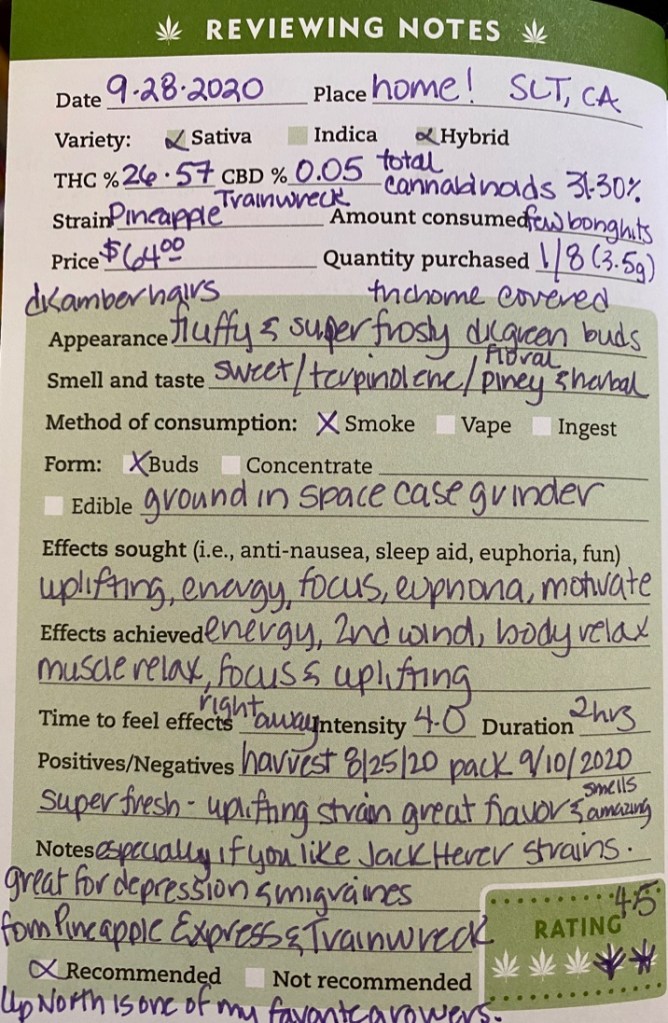 REVIEWING NOTES
Date 9.28.2020 Place home! SLT, CA
Variety: Sativa Indica Hybrid
THC % 26.57 CBD % 0.05 total cannabinoids 31.30%
Strain Pineapple Trainwreck Amount consumed few bong hits
Price $64.00 Quantity purchased 1/8 (3.5g)
dk amber hairs trichome covered
Appearance fluffy & super frosty dk green buds
Smell and taste sweet/terpinolene/floral piney & herbal
Method of consumption: X Smoke Vape Ingest
Form: X Buds Concentrate
Edible ground in space case grinder
Effects sought (i.e., anti-nausea, sleep aid, euphoria, fun)
uplifting, energy, focus, euphoria, motivate
Effects achieved energy, 2nd wind, body relax
muscle relax, focus & uplifting
Time to feel effects right away Intensity 4.0 Duration 2hrs
Positives/Negatives harvest 8/25/20 pack 9/10/2020
super fresh - uplifting strain great flavor & smells amazing
Notes especially if you like Jack Herer strains.
great for depression & migraines
from Pineapple Express & Trainwreck
4.5
RATING
Recommended Not recommended
Up North is one of my favorite growers.